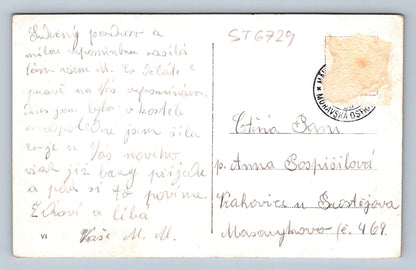 Srdečný pozdrav a
milou vzpomínku zasílá
Vám všem M. M.
právě na Vás vzpomínám.
dnes jsem byla v kostele
a odpoledne jsem šila
co je u Vás nového
však již brzy přijedu
a pak si to povíme.
Zdraví a líbá
Vaše M. M.
VI
ST6729
MORAVSKÁ OSTR
Ctěná Paní
p. Anna Pospíšilová
Vrahovice u Prostějova
Masarykova č. 469.